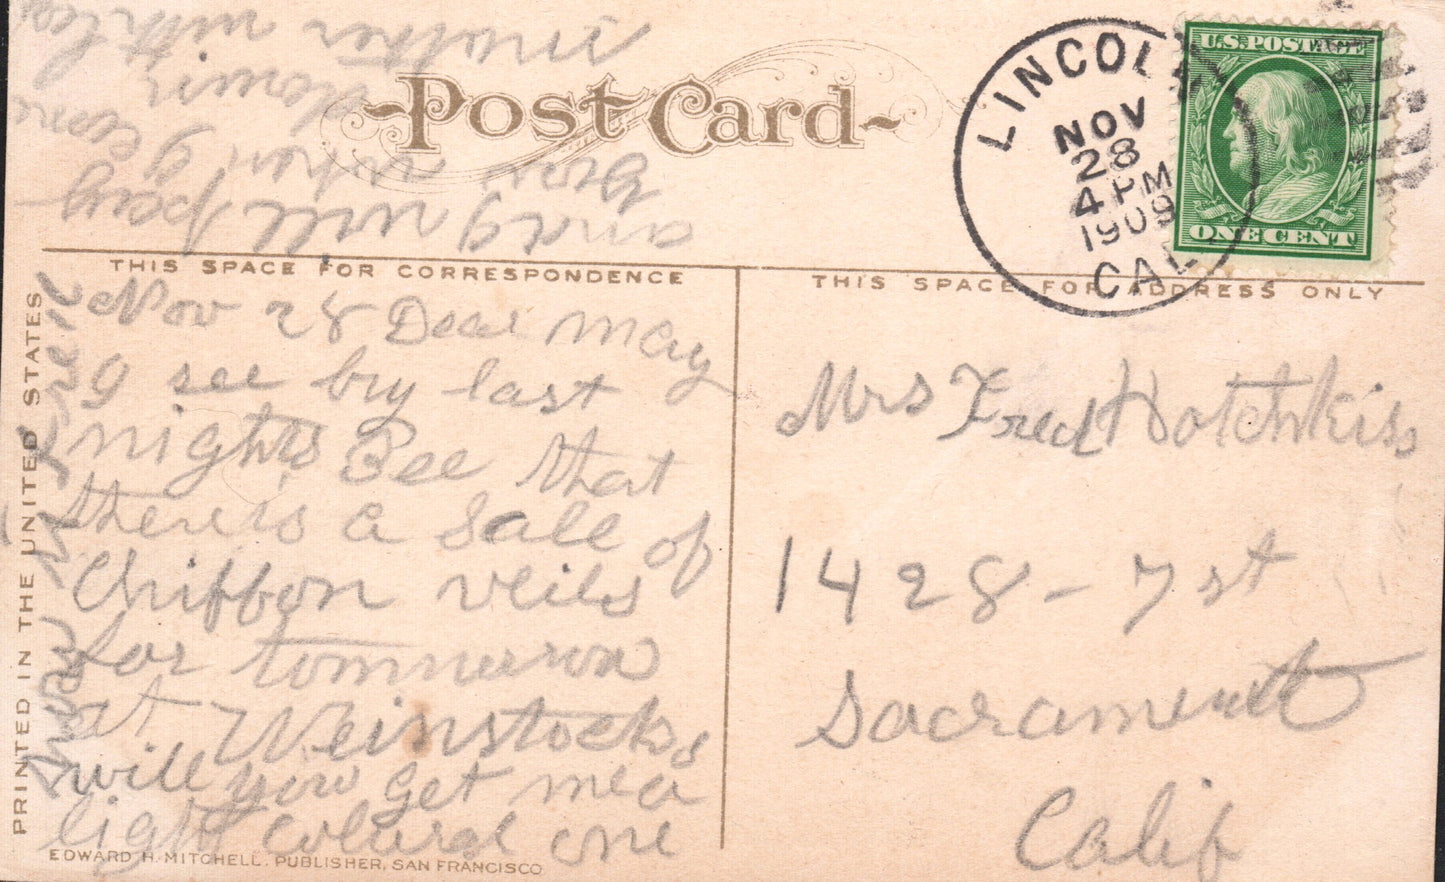 Post Card
U.S. POSTAGE
ONE CENT
LINCOLN
NOV
28
4 PM
1909
CAL
THIS SPACE FOR CORRESPONDENCE
THIS SPACE FOR ADDRESS ONLY
Nov 28 Dear May
I see by last
nights Bee that
there is a Sale of
Chiffon veils
for tommorrow
at Weinstocks
will you get me a
light colured one
and I will pay
you when I come
down
matter with
Mrs Fred Hotchkiss
1428 - 7 st
Sacramento
Calif
PRINTED IN THE UNITED STATES
EDWARD H. MITCHELL, PUBLISHER, SAN FRANCISCO